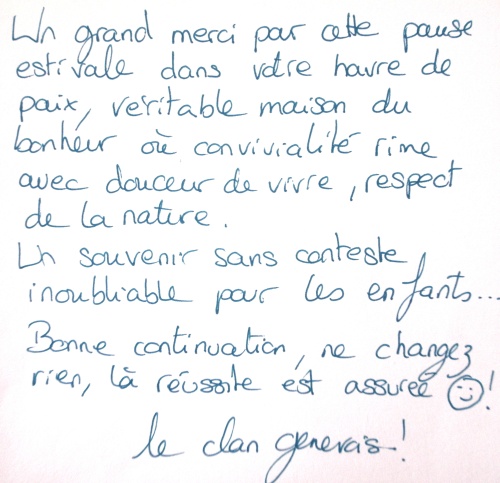 Un grand merci par cette pause
estivale dans votre havre de
paix, véritable maison du
bonheur où convivialité rime
avec douceur de vivre, respect
de la nature.
Un souvenir sans conteste
inoubliable pour les enfants...
Bonne continuation, ne changez
rien, là réussite est assurée ☺!
le clan genevais!